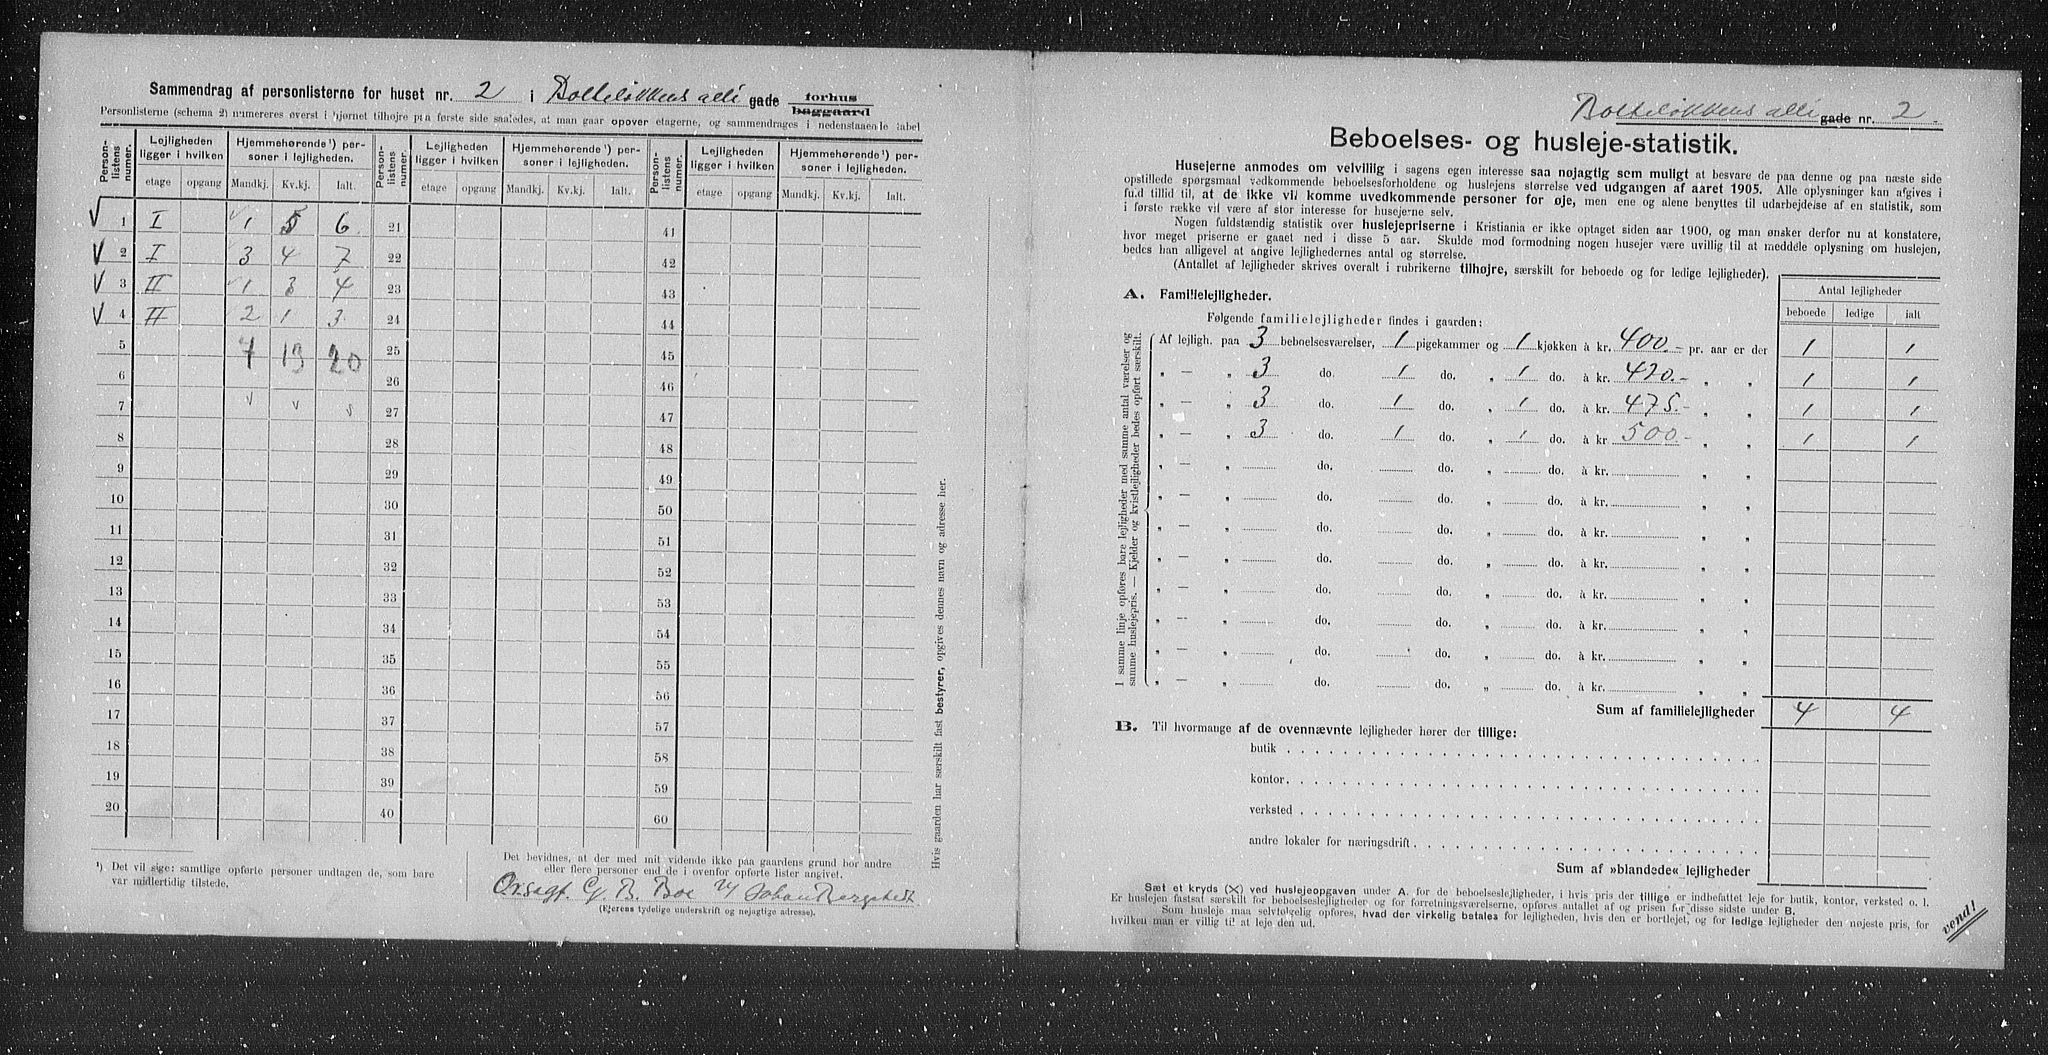 Sammendrag af personlisterne for huset nr. 2 i Bolteløkkens alli gade forhus baggaard
Personlisterne (schema 2) numereres øverst i hjørnet tilhøjre paa første side saaledes, at man gaar opover etagerne, og sammendrages i nedenstaaende tabel
Person-listens numer. Lejligheden ligger i hvilken Hjemmehørende¹) personer i lejligheden. Person-listens numer. Lejligheden ligger i hvilken Hjemmehørende¹) personer i lejligheden. Person-listens numer. Lejligheden ligger i hvilken Hjemmehørende¹) personer i lejligheden.
etage opgang Mandkj. Kv.kj. Ialt. etage opgang Mandkj. Kv.kj. Ialt. etage opgang Mandkj. Kv.kj. Ialt.
V 1 I 1 5 6 21 41
V 2 I 3 4 7 22 42
V 3 II 1 3 4 23 43
V 4 II 2 1 3 24 44
5 7 13 20 25 45
6 26 46
7 v v v 27 47
8 28 48
9 29 49
10 30 50
11 31 51
12 32 52
13 33 53
14 34 54
15 35 55
16 36 56
17 37 57
18 38 58
19 39 59
20 40 60
¹) Det vil sige: samtlige opførte personer undtagen de, som bare
var midlertidig tilstede.
Det bevidnes, at der med mit vidende ikke paa gaardens grund bor andre
eller flere personer end de i ovenfor opførte lister angivet.
G. B. Boe Johan Bergstedt
(Ejerens tydelige underskrift og nøjagtige adresse).
Hvis gaarden har særskilt fast bestyrer, opgives dennes navn og adresse her.
Bolteløkkens alli gade nr. 2.
Beboelses- og husleje-statistik.
Husejerne anmodes om velvillig i sagens egen interesse saa nøjagtig som muligt at besvare de paa denne og paa næste side
opstillede spørgsmaal vedkommende beboelsesforholdene og huslejens størrelse ved udgangen af aaret 1905. Alle oplysninger kan afgives i
fuld tillid til, at de ikke vil komme uvedkommende personer for øje, men ene og alene benyttes til udarbejdelse af en statistik, som
i første række vil være af stor interesse for husejerne selv.
Nogen fuldstændig statistik over huslejepriserne i Kristiania er ikke optaget siden aar 1900, og man ønsker derfor nu at konstatere,
hvor meget priserne er gaaet ned i disse 5 aar. Skulde mod formodning nogen husejer være uvillig til at meddele oplysning om huslejen,
bedes han alligevel at angive lejlighedernes antal og størrelse.
(Antallet af lejligheder skrives overalt i rubrikerne tilhøjre, særskilt for beboede og for ledige lejligheder).
A. Familielejligheder.
Antal lejligheder
Følgende familielejligheder findes i gaarden:
beboede ledige ialt
I samme linje opføres bare lejligheder med samme antal værelser og
samme huslejepris. — Kjelder og kvistlejligheder bedes opført særskilt.
Af lejligh. paa 3 beboelsesværelser, 1 pigekammer og 1 kjøkken à kr. 400.- pr. aar er der 1 1
„ — „ 3 do. 1 do. „ 1 do. à kr. 420.- „ „ 1 1
„ — „ 3 do. 1 do. „ 1 do. à kr. 475.- „ „ 1 1
„ — „ 3 do. 1 do. „ 1 do. à kr 500.- „ „ 1 1
„ — „ do. do. „ do. à kr. „ „
„ — „ do. do. „ do. à kr. „ „
„ — „ do. do. „ do. à kr. „ „
„ — „ do. do. „ do. à kr. „ „
„ — „ do. do. „ do. à kr. „ „
„ — „ do. do. „ do. à kr. „ „
„ — „ do. do. „ do. à kr. „ „
„ — „ do. do. „ do. à kr. „ „
Sum af familielejligheder 4 4
B. Til hvormange af de ovennævnte lejligheder hører der tillige:
butik
kontor
verksted
andre lokaler for næringsdrift
Sum af »blandede« lejligheder
Sæt et kryds (X) ved huslejeopgaven under A. for de beboelseslejligheder, i hvis pris der tillige er indbefattet leje for butik, kontor, verksted o. l.
Er huslejen fastsat særskilt for beboelseslejligheder og for forretningsværelserne, opføres antallet af og prisen for disse sidste under B.
Som husleje maa selvfølgelig opføres, hvad der virkelig betales for lejligheden, hvis den er bortlejet, og for ledige lejligheder den nøjeste pris, for
hvilken man er villig til at leje den ud.
vend!